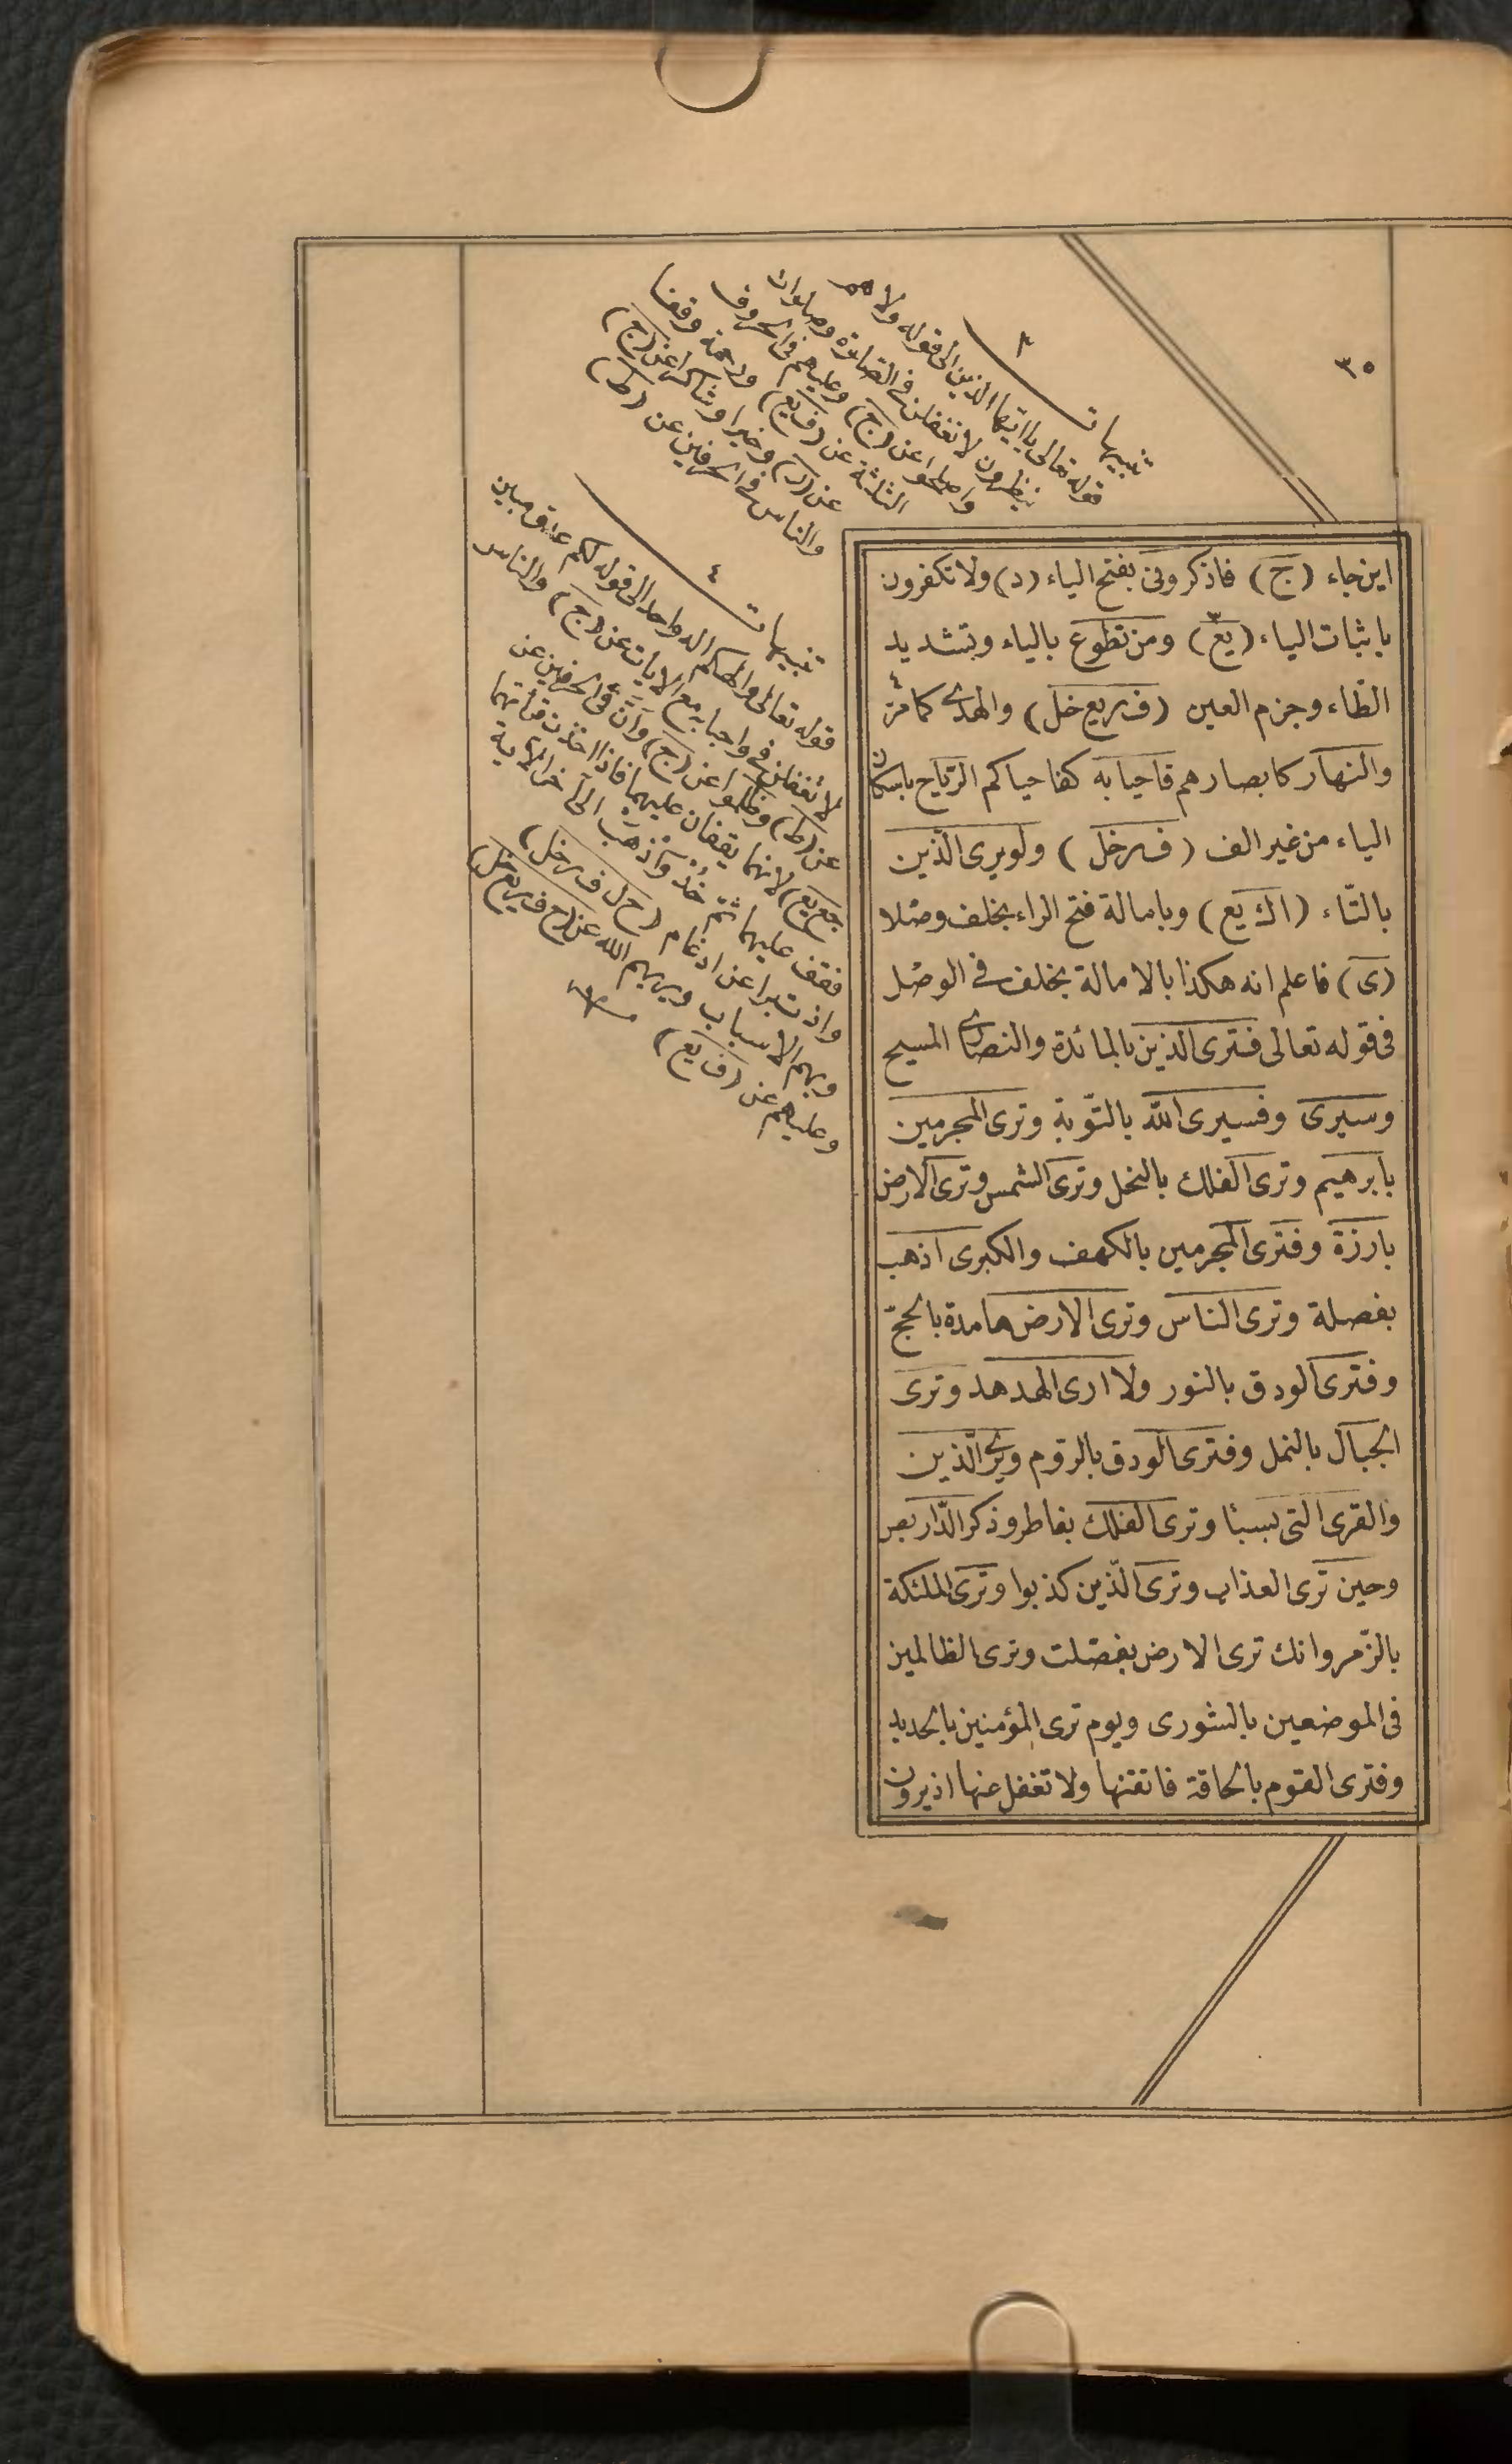 ٣٥
اين جاء (ج) فاذكرونى بفتح الياء (د) ولا تكفرون
باثبات الياء (يع) ومن تطوع بالياء وبتشديد
الطّاء وجزم العين (ف ر يع خل) والهدى كما مرّ
والنهار كابصارهم فاحيا به كفاحياكم الرّياح باسكان
الياء من غير الف (ف ر خل) ولو يرى الّذين
بالتّاء (اك يع) وبامالة فتح الراء بخلف وصْلا
(ى) فاعلم انه هكذا بالامالة بخلف فى الوصْل
فى قوله تعالى فترى الذين بالمائدة والنصارى المسيح
وسيرى وفسيرى اللّه بالتّوبة وترى المجرمين
بابرهيم وترى الفلك بالنحل وترى الشمس وترى الارض
بارزة وفترى المجرمين بالكهف والكبرى اذهب
بفصلة وترى الناس وترى الارض هامدة بالحجّ
وفترى الودق بالنور ولا ارى الهدهد وترى
الجبال بالنمل وفترى الودق بالرّوم ويرى الّذين
والقرى التى بسبئا وترى الفلك بفاطر وذكر الدّار بص
وحين ترى العذاب وترى الّذين كذبوا وترى الملئكة
بالزّمر وانك ترى الارض بفصّلت وترى الظالمين
فى الموضعين بالشورى ويوم ترى المؤمنين بالحديد
وفترى القوم بالحاقة فاتقنها ولا تغفل عنها اذ يرون
تنبيهات
٣
قوله تعالى يا ايّها الذين الى قوله ولاهم
ينظرون لا تغفلن فى الصّلوة وصلوات
واصلحوا عن (ج) وعليهم فى الحروف
الثلثة عن (ف يع) ورحمة وقفا
عن (ر) وخيرا وشاكرا عن (ج)
والناس فى الحرفين عن (ط)
تنبيهات
٤
قوله تعالى والهكم اله واحد الى قوله لكم عدوّ مبين
لا تغفلن فى واحيا به مع الايات عن (ج) والناس
عن (ط) وظلموا عن (ج) وانّ فى الحرفين عن
(جع يع) لانهما يقفان عليهما فاذا اخذت قرائتهما
فقف عليهما ثمّ خُذْ واذْهَبْ الى آخر الآية
واذ تبرا عن ادغام (ح ل ف ر خل)
وبهم الاسباب ويريهم الله عن (ح ف ر يع خل)
وعليهم عن (ف يع)